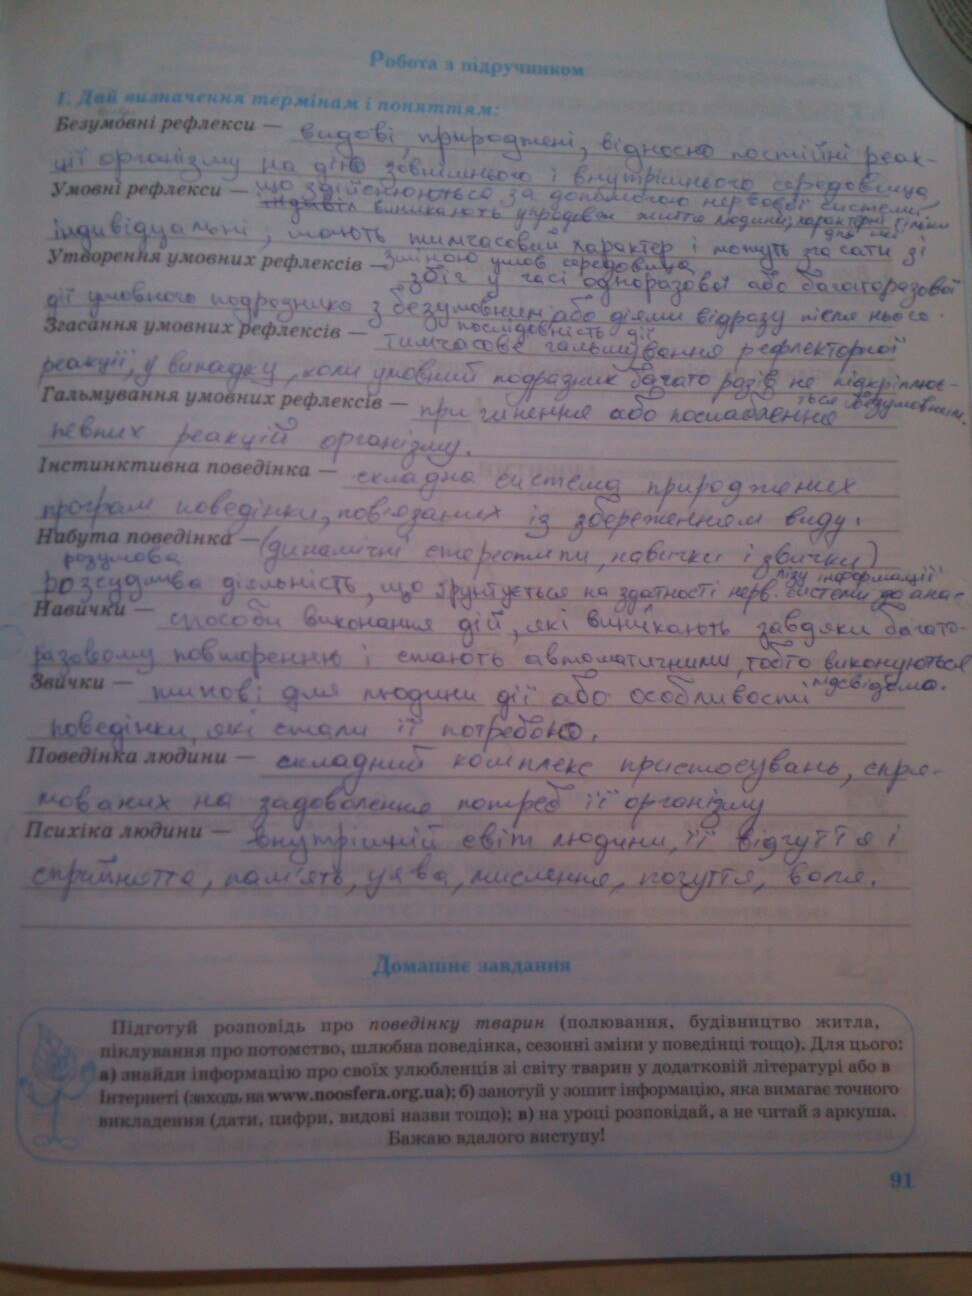 Робота з підручником
І. Дай визначення термінам і поняттям:
Безумовні рефлекси — видові, природжені, відносно постійні реак-
ції організму на дію зовнішнього і внутрішнього середовища,
що здійснюються за допомогою нервової системи.
Умовні рефлекси — виникають упродовж життя людини; характерні тільки
для неї
індивідуальні, мають тимчасовий характер і можуть згасати зі
зміною умов середовища
Утворення умовних рефлексів — збіг у часі одноразової або багаторазової
дії умовного подразника з безумовним або діями відразу після нього.
послідовність дії
Згасання умовних рефлексів — тимчасове гальмування рефлекторної
реакції, у випадку, коли умовний подразник багато разів не підкріплює-
ться безумовним.
Гальмування умовних рефлексів — припинення або послаблення
певних реакцій організму.
Інстинктивна поведінка — складна система природжених
програм поведінки, пов'язаних із збереженням виду.
Набута поведінка — (динамічні стереотипи, навички і звички)
розумова
розсудлива діяльність, що ґрунтується на здатності нерв. системи до ана-
лізу інформації
Навички — способи виконання дій, які виникають завдяки багато-
разовому повторенню і стають автоматичними, тобто виконуються
підсвідомо.
Звички — типові для людини дії або особливості
поведінки, які стали її потребою.
Поведінка людини — складний комплекс пристосувань, спря-
мованих на задоволення потреб її організму
Психіка людини — внутрішній світ людини, її відчуття і
сприйняття, пам'ять, уява, мислення, почуття, воля.
Домашнє завдання
Підготуй розповідь про поведінку тварин (полювання, будівництво житла,
піклування про потомство, шлюбна поведінка, сезонні зміни у поведінці тощо). Для цього:
а) знайди інформацію про своїх улюбленців зі світу тварин у додатковій літературі або в
Інтернеті (заходь на www.noosfera.org.ua); б) занотуй у зошит інформацію, яка вимагає точного
викладення (дати, цифри, видові назви тощо); в) на уроці розповідай, а не читай з аркуша.
Бажаю вдалого виступу!
91